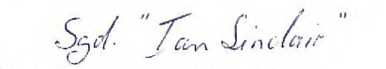 Sgd. "Ian Sinclair"